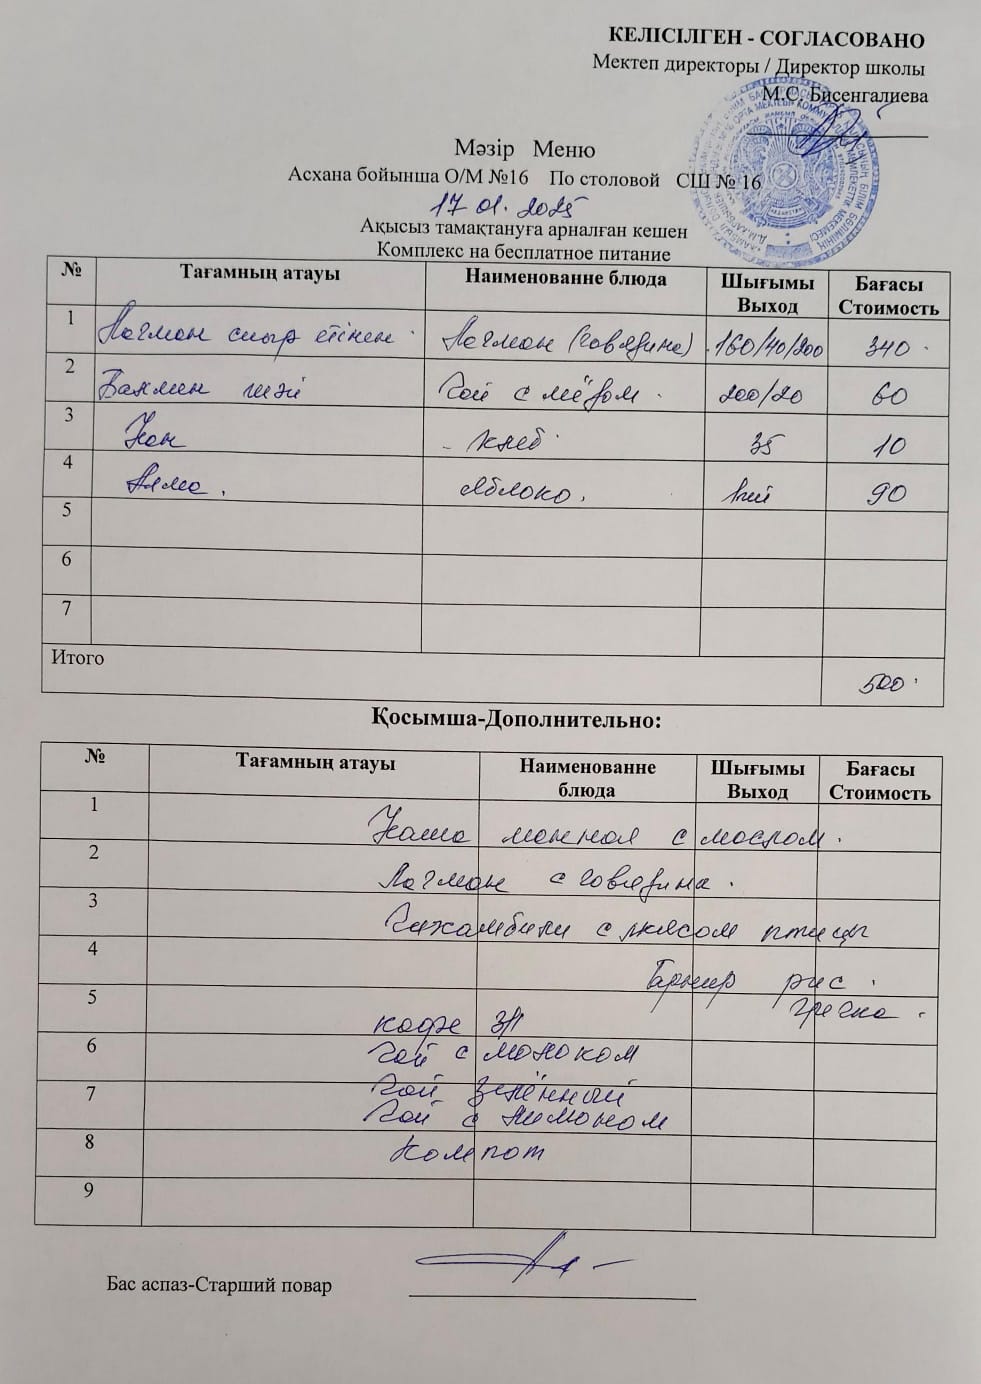 КЕЛІСІЛГЕН - СОГЛАСОВАНО
Мектеп директоры / Директор школы
М.С. Бисенгалиева
Мәзір Меню
Асхана бойынша О/М №16 По столовой СШ № 16
17 01. 2025
Ақысыз тамақтануға арналған кешен
Комплекс на бесплатное питание
№ Тағамның атауы Наименование блюда Шығымы Выход Бағасы Стоимость
1 Лагман сиыр етінен Лагман (говядина) 160/40/200 340
2 Балмен шәй Чай с мёдом 200/20 60
3 Нан хлеб 35 10
4 Алма. Яблоко. 90
5
6
7
Итого 500
Қосымша-Дополнительно:
№ Тағамның атауы Наименованне блюда Шығымы Выход Бағасы Стоимость
1 Каша манная с маслом.
2 Лагман с говядина.
3 с мясом птицы
4 Гарнир рис.
гречка.
5 кофе 3/1
6 Чай с молоком
7 Чай зелённый
Чай с лимоном
8 Компот
9
Бас аспаз-Старший повар